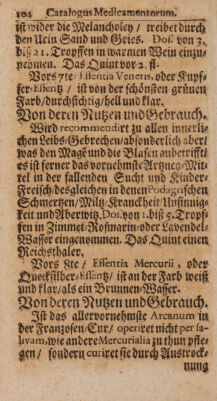 104 Catalogus Medicamentorum.
ist wider die Melancholey / treibet durch
den Urin Sand und Gries. Dos. von 3.
biß 21. Tropffen in warmen Wein einzu-
nehmen. Das Quint vor 2. fl.
Vors 7te / Essentia Veneris, oder Kupf-
fer-Essentz / ist von der schönsten grünen
Farb / durchsichtig / hell und klar.
Von deren Nutzen und Gebrauch.
Wird recommendirt zu allen innerli-
chen Leibs-Gebrechen / absonderlich aber /
was den Mage und die Blasen anbetrifft
es ist ferner das vornehmste Artzney-Mit-
tel in der fallenden Sucht und Kinder-
Freisch / desgleichen in denen Podagrischen
Schmertzen / Miltz-Kranckheit / Unsinnig-
keit und Aberwitz. Dos. von 1. biß 5. Tropf-
fen in Zimmet-Rosmarin- oder Lavendel-
Wasser eingenommen. Das Quint einen
Reichsthaler.
Vors 8te / Essentia Mercurii, oder
Quecksilber-Essentz / ist an der Farb weiß
und klar / als ein Brunnen-Wasser.
Von deren Nutzen und Gebrauch.
Ist das allervornehmste Arcanum in
der Frantzosen-Cur / operiret nicht per sa-
livam, wie andere Mercurialia zu thun pfle-
gen / sondern curiret sie durch Austrock-
nung